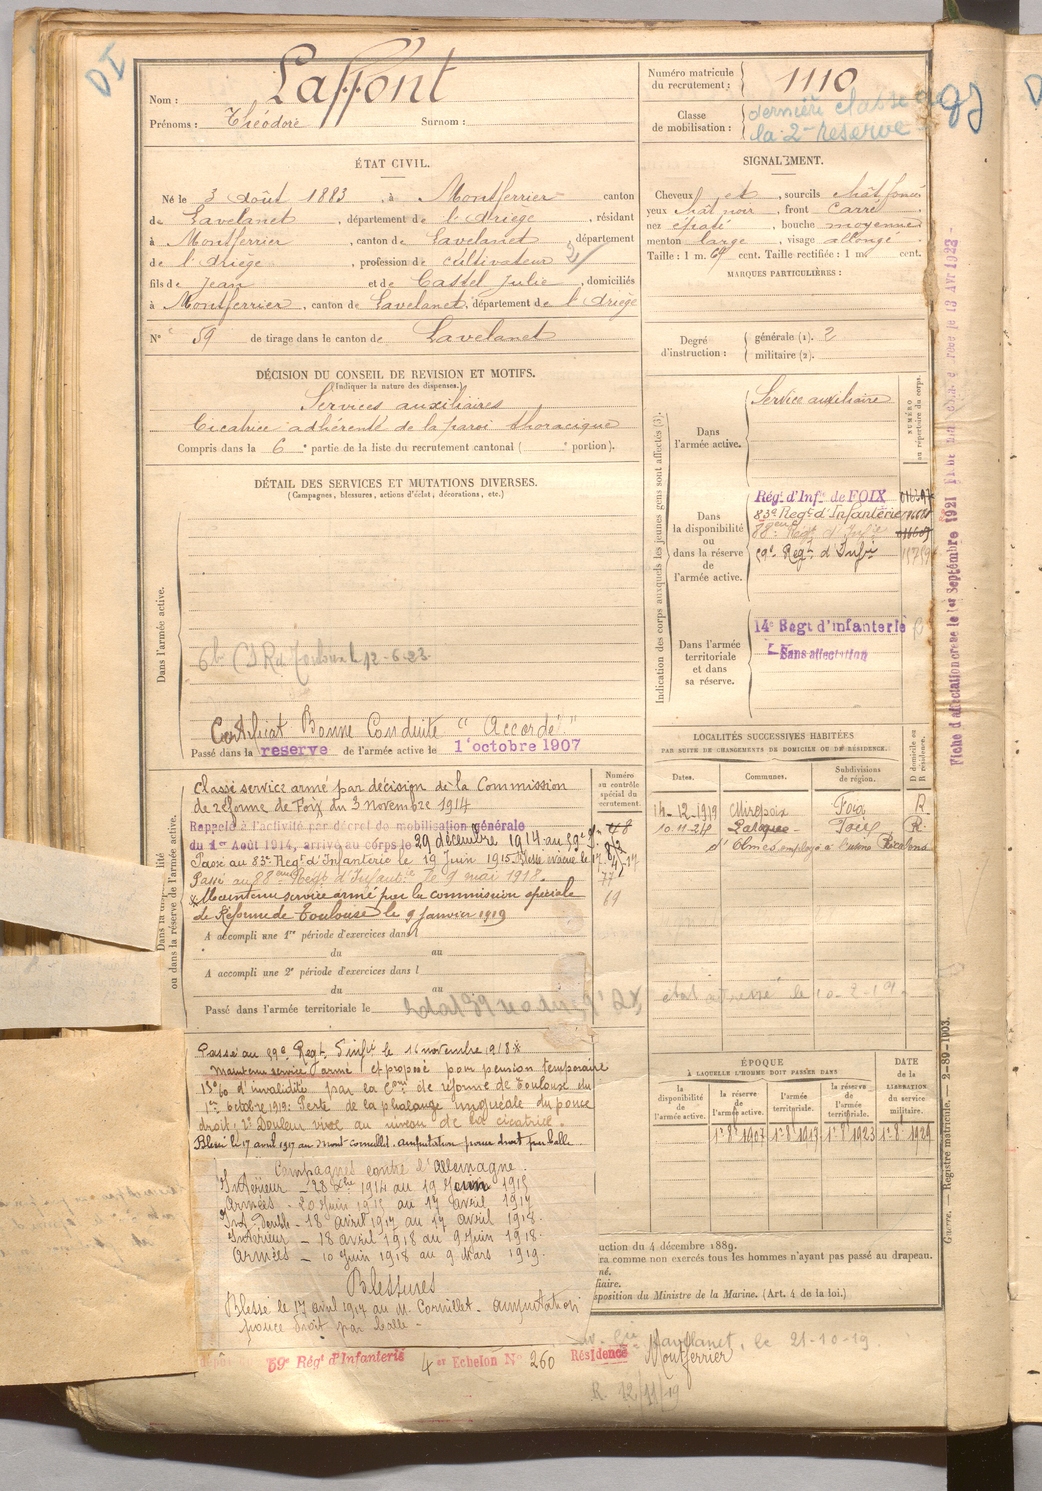 DI
Nom : Laffont
Prénoms : Théodore Surnom :
Numéro matricule du recrutement : 1110
Classe de mobilisation : dernière classe de la 2e réserve
ÉTAT CIVIL.
Né le 3 août 1883, à Montferrier canton
de Lavelanet, département de l'Ariège, résidant
à Montferrier, canton de Lavelanet, département
de l'Ariège, profession de cultivateur
fils de Jean et de Castel Julie, domiciliés
à Montferrier, canton de Lavelanet, département de l'Ariège
N° 59 de tirage dans le canton de Lavelanet
SIGNALEMENT.
Cheveux et, sourcils chât foncé
yeux chât noir, front carré,
nez épaté, bouche moyenne
menton large, visage allongé.
Taille : 1 m. 69 cent. Taille rectifiée : 1 m. cent.
MARQUES PARTICULIÈRES :
Degré d'instruction : générale (1). 2
militaire (2).
DÉCISION DU CONSEIL DE REVISION ET MOTIFS.
(Indiquer la nature des dispenses.)
Services auxiliaires
Cicatrice adhérente de la paroi thoracique
Compris dans la 6e partie de la liste du recrutement cantonal ( e portion).
DÉTAIL DES SERVICES ET MUTATIONS DIVERSES.
(Campagnes, blessures, actions d'éclat, décorations, etc.)
Dans l'armée active.
12-6-23
Certificat Bonne Conduite "Accordé"
Passé dans la réserve de l'armée active le 1er octobre 1907
Indication des corps auxquels les jeunes gens sont affectés (3).
NUMÉRO au répertoire du corps.
Dans l'armée active.
Service auxiliaire
Dans la disponibilité ou dans la réserve de l'armée active.
Régt d'Infie de FOIX
83e Régt d'Infanterie
88eme Régt d'Infie
59e Régt d'Infie
Dans l'armée territoriale et dans sa réserve.
14e Régt d'infanterie
Sans affectation
Fiche d'affectation créée le 1er Septembre 1921
ou dans la réserve de l'armée active.
Numéro au contrôle spécial du recrutement.
Classé service armé par décision de la Commission
de réforme de Foix du 3 novembre 1914
Rappelé à l'activité par décret de mobilisation générale
du 1er Août 1914, arrivé au corps le 29 décembre 1914 au 59e
Passé au 83e Régt d'Infanterie le 19 Juin 1915. Blessé évacué le 17.4.17
Passé au 88eme Régt d'Infanterie le 9 mai 1918.
Maintenu service armé par la commission spéciale
de Réforme de Toulouse le 9 janvier 1919
A accompli une 1re période d'exercices dans l
du au
A accompli une 2e période d'exercices dans l
du au
Passé dans l'armée territoriale le
LOCALITÉS SUCCESSIVES HABITÉES
PAR SUITE DE CHANGEMENTS DE DOMICILE OU DE RÉSIDENCE.
Dates. Communes. Subdivisions de région. D domicile ou R résidence.
14-12-1919 Mirepoix Foix R
10-11-24 Laroque Foix R.
d'Olmes employé à l'usine
état adressé le 10-2-19.
Passé au 59e Régt d'infie le 16 novembre 1918
Maintenu service armé et proposé pour pension temporaire
15% d'invalidité par la Con de réforme de Toulouse du
1er octobre 1919: Perte de la phalange unguéale du pouce
droit; 2° Douleur vive au niveau de la cicatrice.
Blessé le 17 avril 1917 au Mont-cornillet. amputation pouce droit par balle
Campagnes contre l'Allemagne.
Intérieur - 28 Xbre 1914 au 19 Juin 1915
Armées - 20 Juin 1915 au 17 avril 1917
Int. - 18 avril 1917 au 17 avril 1918.
Intérieur - 18 avril 1918 au 9 Juin 1918.
Armées - 10 Juin 1918 au 9 Mars 1919.
Blessures
Blessé le 17 avril 1917 au M. Cornillet - amputation
pouce droit par balle -
ÉPOQUE
À LAQUELLE L'HOMME DOIT PASSER DANS
la disponibilité de l'armée active. la réserve de l'armée active. l'armée territoriale. la réserve de l'armée territoriale. DATE de la LIBÉRATION du service militaire.
1er 8bre 1907 1er 8bre 1917 1er 8bre 1923 1er 8bre 1929
uction du 4 décembre 1889.
ra comme non exercés tous les hommes n'ayant pas passé au drapeau.
né.
fiaire.
sposition du Ministre de la Marine. (Art. 4 de la loi.)
Guerre. — Registre matricule. — 2-89-1903.
59e Régt d'Infanterie 4er Echelon N° 260 Résidence Montferrier
Lavelanet, le 21-10-19
R. 12/11/19